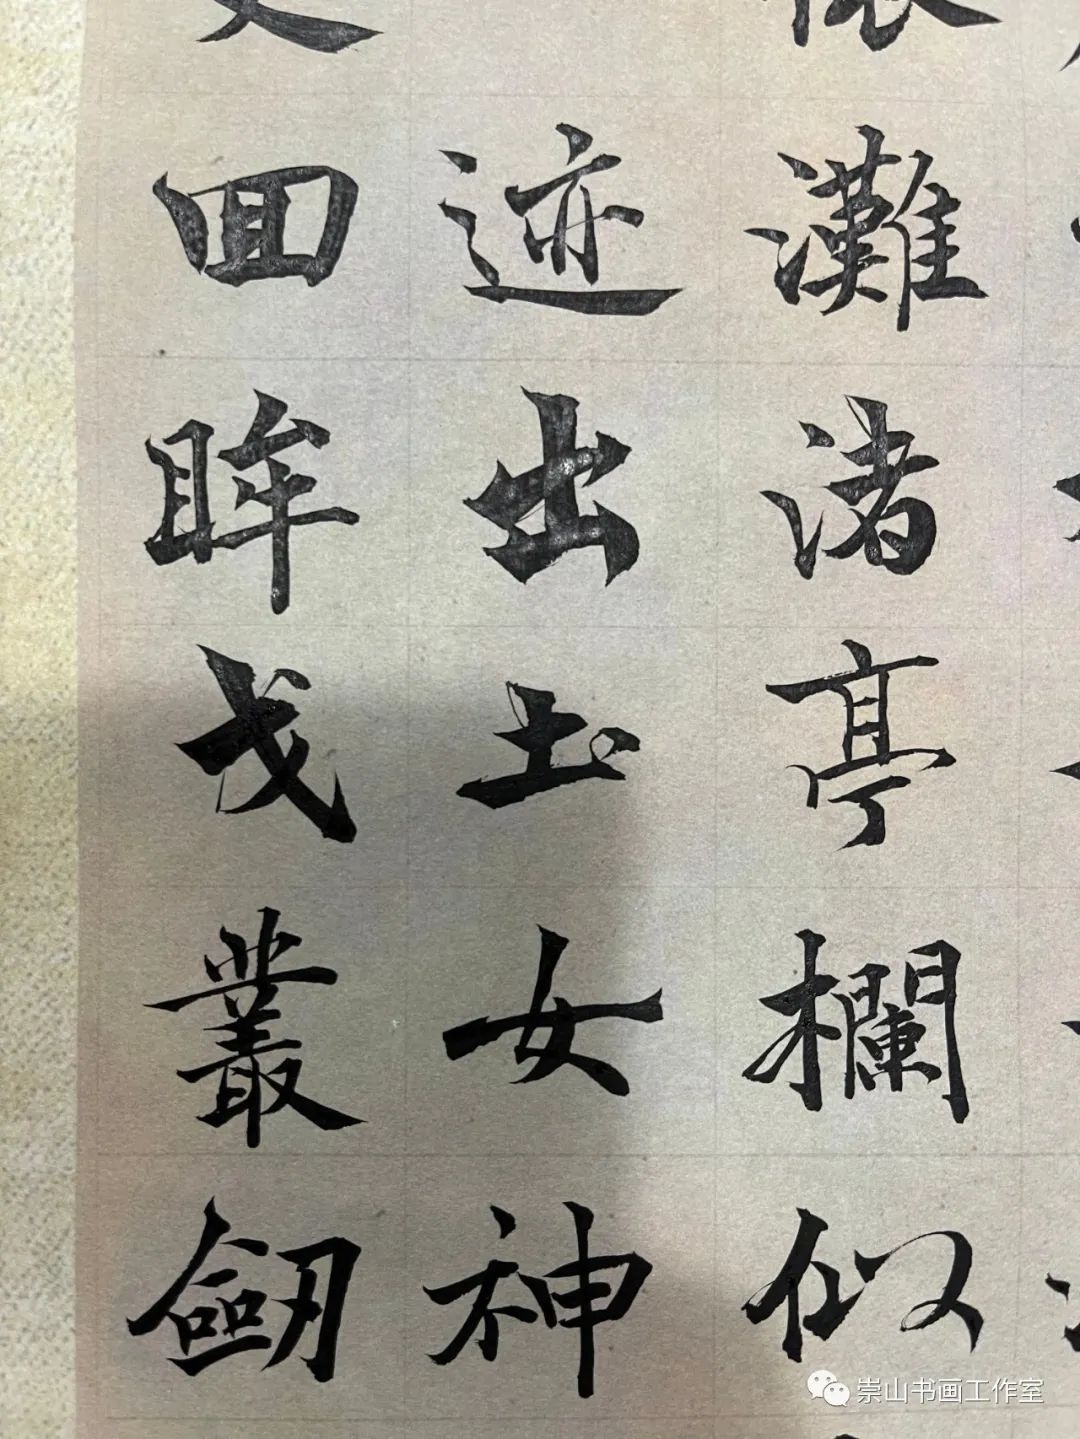 灘渚亭欄似
迹出土女神
回眸戈叢劒
崇山书画工作室